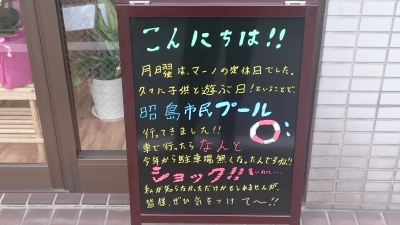 こんにちは!!
月曜は、マーノの定休日でした。
久々に子供と遊ぶ日!ということで、
昭島市民プール
行ってきました!!
車で行ったら なんと
今年から駐車場無くなったんですね!!
ショック!!
私が知らなかっただけかもしれませんが、
皆様、ぜひ気をつけて〜!!